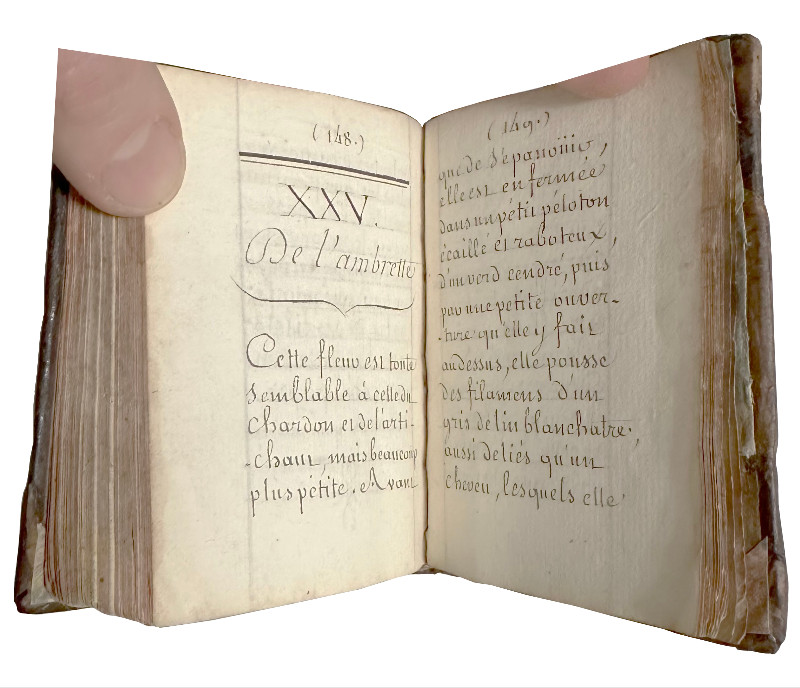 (148.)
XXV.
De l'ambrette
Cette fleur est toute
semblable á celle du
chardon et de l'arti-
-chaut, mais beaucoup
plus pétite. Avant
(149.)
que de s'epanoüir,
elle est enfermée
dans un pétit péloton
écaillé et raboteux,
d'un verd cendré, puis
par une petite ouver-
-ture qu'elle y fait
au dessus, elle pousse
des filamens d'un
gris de lin blanchatre,
aussi deliés qu'un
cheveu, lesquels elle